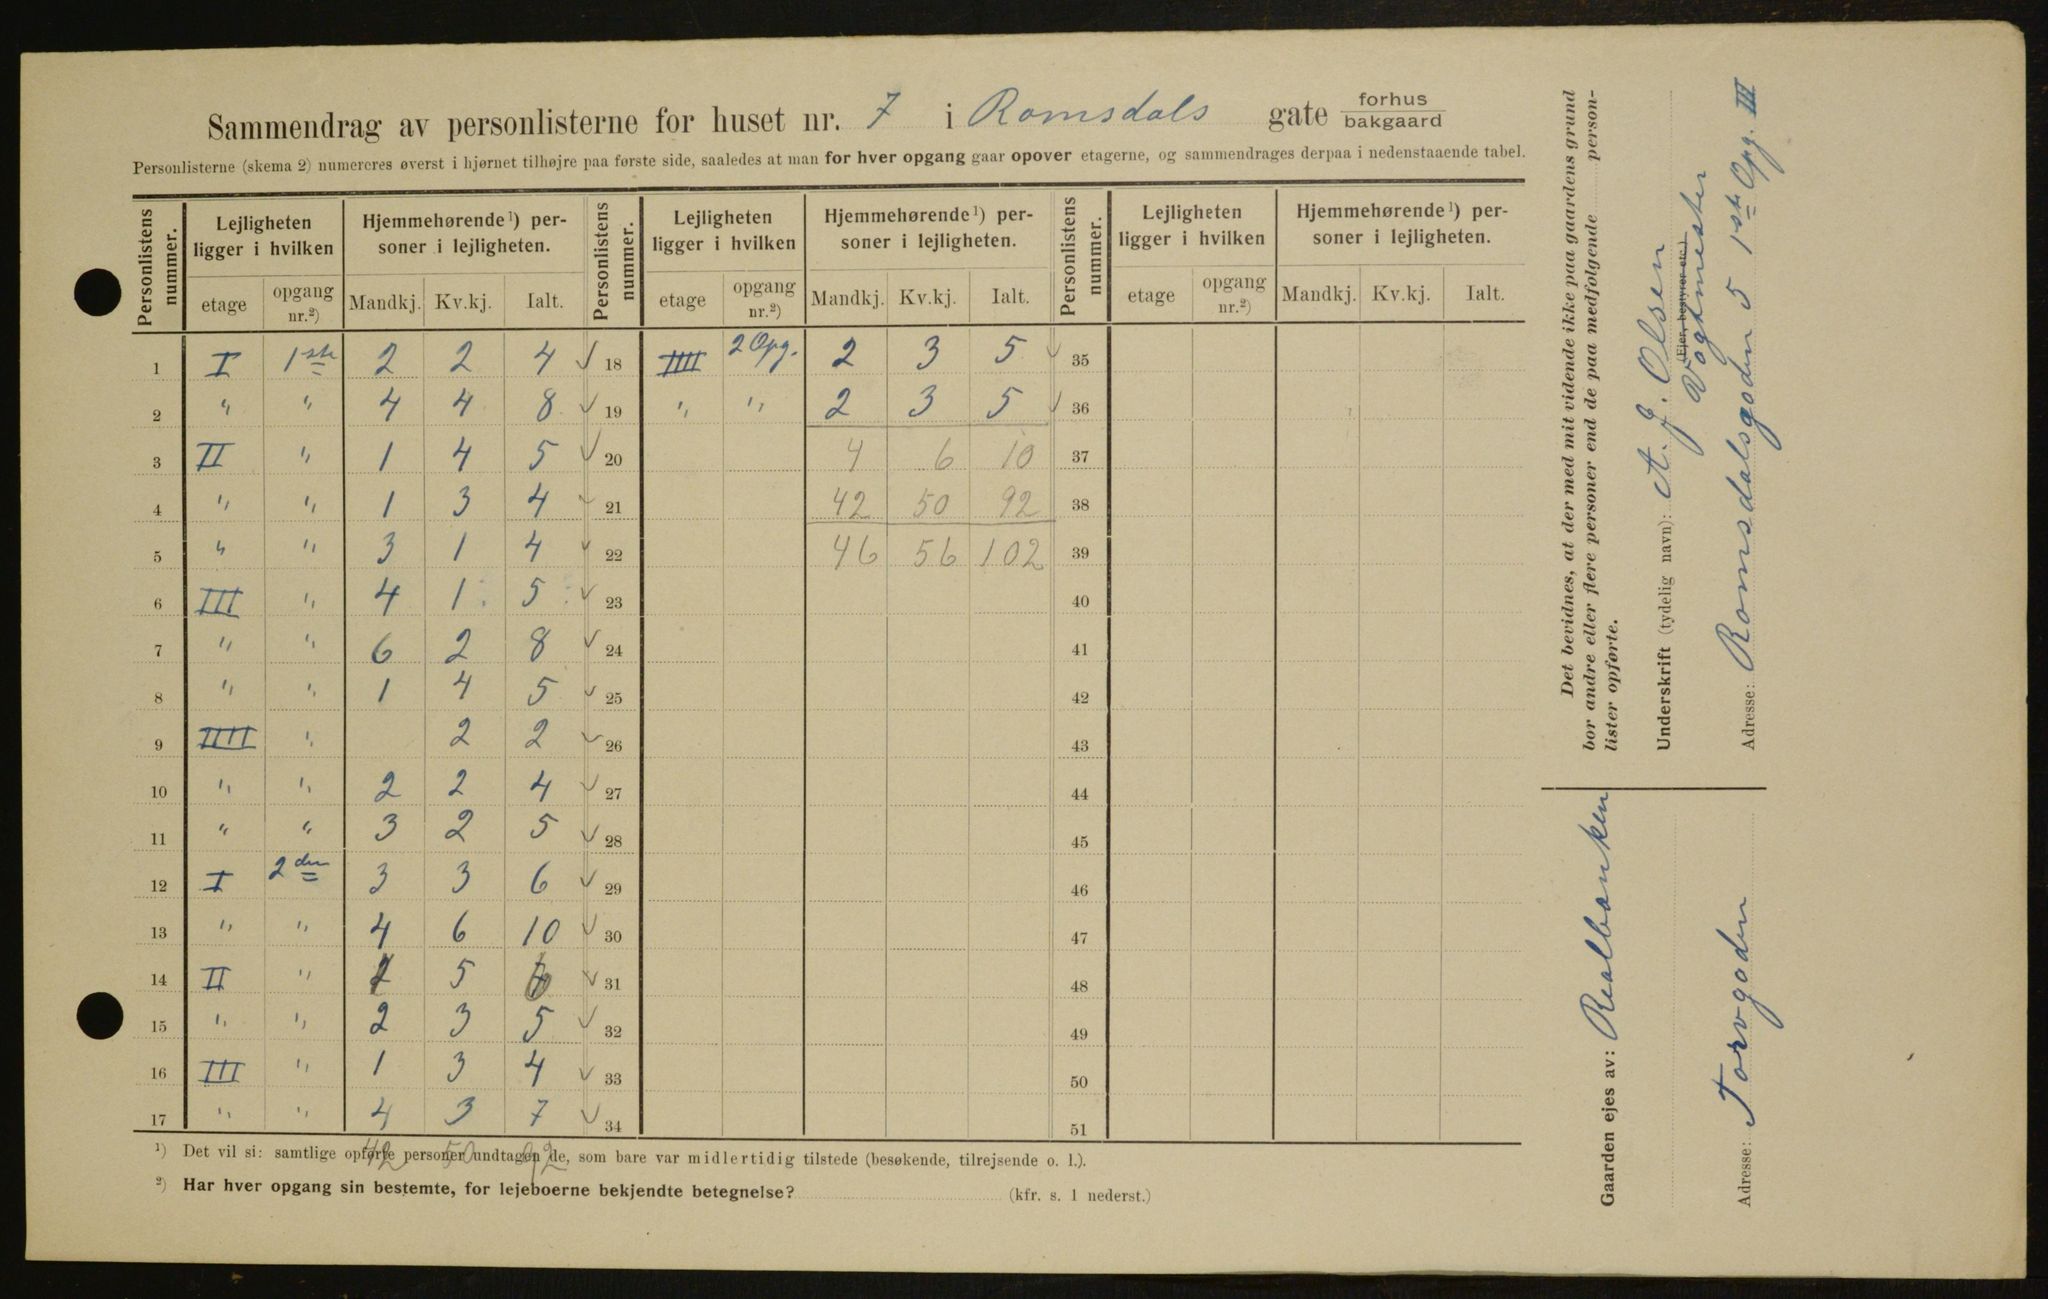 Sammendrag av personlisterne for huset nr. 7 i Romsdals gate forhus bakgaard
Personlisterne (skema 2) numereres øverst i hjørnet tilhøjre paa første side, saaledes at man for hver opgang gaar opover etagerne, og sammendrages derpaa i nedenstaaende tabel.
Personlistens nummer. Lejligheten ligger i hvilken Hjemmehørende¹) personer i lejligheten. Personlistens nummer. Lejligheten ligger i hvilken Hjemmehørende¹) personer i lejligheten. Personlistens nummer. Lejligheten ligger i hvilken Hjemmehørende¹) personer i lejligheten.
etage opgang nr.²) Mandkj. Kv.kj. Ialt. etage opgang nr.²) Mandkj. Kv.kj. Ialt. etage opgang nr.²) Mandkj. Kv.kj. Ialt.
1 I 1ste 2 2 4 ✓ 18 IIII 2 Opg. 2 3 5 ✓ 35
2 " " 4 4 8 ✓ 19 " " 2 3 5 ✓ 36
3 II " 1 4 5 ✓ 20 4 6 10 37
4 " " 1 3 4 ✓ 21 42 50 92 38
5 " " 3 1 4 ✓ 22 46 56 102 39
6 III " 4 1 5 ✓ 23 40
7 " " 6 2 8 ✓ 24 41
8 " " 1 4 5 ✓ 25 42
9 IIII " 2 2 ✓ 26 43
10 " " 2 2 4 ✓ 27 44
11 " " 3 2 5 ✓ 28 45
12 I 2den 3 3 6 ✓ 29 46
13 " " 4 6 10 ✓ 30 47
14 II " 5 6 ✓ 31 48
15 " " 2 3 5 ✓ 32 49
16 III " 1 3 4 ✓ 33 50
17 " " 4 3 7 ✓ 34 51
42 50 92
¹) Det vil si: samtlige opførte personer undtagen de, som bare var midlertidig tilstede (besøkende, tilrejsende o. l.).
²) Har hver opgang sin bestemte, for lejeboerne bekjendte betegnelse? (kfr. s. 1 nederst.)
Det bevidnes, at der med mit vidende ikke paa gaardens grund
bor andre eller flere personer end de paa medfølgende person-
lister opførte.
Underskrift (tydelig navn): A. J. Olsen
(Ejer, bestyrer etc.)
Vogtmester
Adresse: Romsdalsgaden 5 1ste Opg. III
Gaarden ejes av: Realbanken
Adresse: Torvgaden